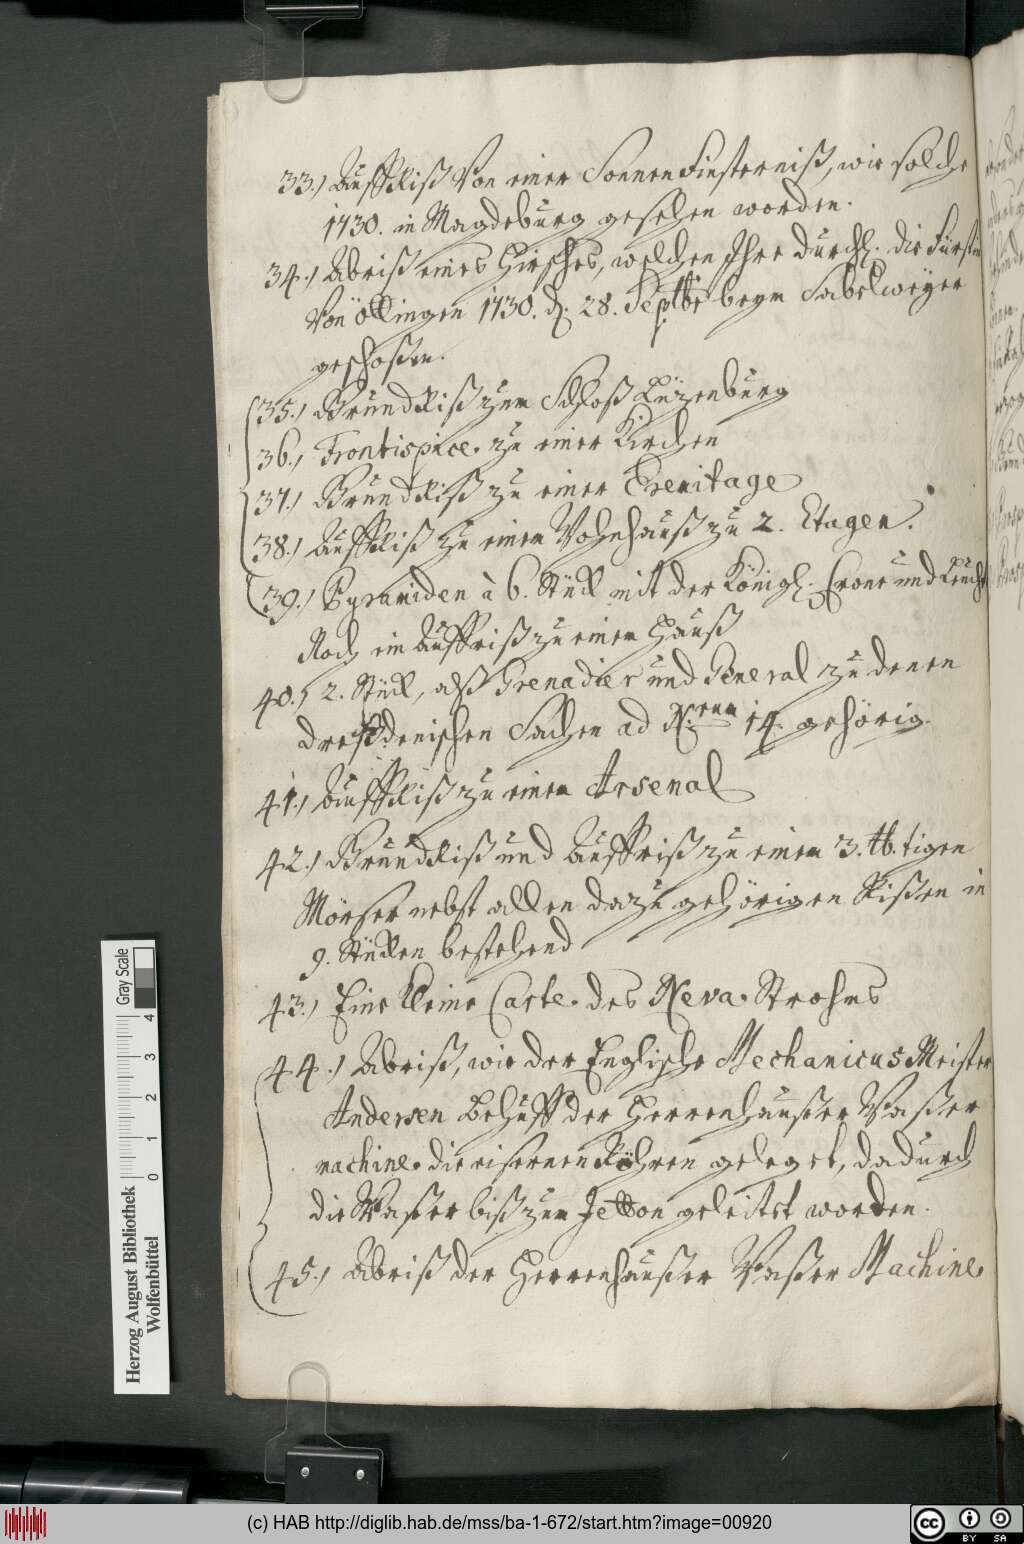 33.) Auffriß Von einer Sonnen Finsterniß, wie solche
1730. in Magdeburg gesehen worden.
34.) Abriß eines Hirsches, welchen Ihre Durchl. die Fürstin
Von Ottingen 1730. d. 28. Septbr beym
geschoßen.
35.) Grundriß zum Schloß Lüzenburg
36.) Frontispice zu einer Kirchen
37.) Grundriß zu einer Eremitage
38.) Auffriß zu einem Wohnhauß zu 2. Etagen.
39.) Pyramiden à 6. Stück mit der Königl. Crone und
Noch ein Auffriß zu einem Hauß
40.) 2. Stück, alß Grenadier und General zu denen
dreßdenischen Sachen ad N.rum 14. gehörig.
41.) Auffriß zu einem Arsenal
42.) Grundriß und Auffriß zu einem 3. tb.tigen
Mörser nebst allen dazu gehörigen Rißen in
9. Stücken bestehend
43.) Eine kleine Carte des Neva Strohms
44.) Abriß, wie der Englische Mechanicus Meister
Andersen behuff der Herrenhaußer Waßer
machine die eisernen Röhren geleget, dadurch
die Waßer biß zum Jetton geleitet worden.
45.) Abriß der Herrenhaußer Waßer Machine
Gray Scale
0 1 2 3 4
Herzog August Bibliothek
Wolfenbüttel
(c) HAB http://diglib.hab.de/mss/ba-1-672/start.htm?image=00920
cc BY SA